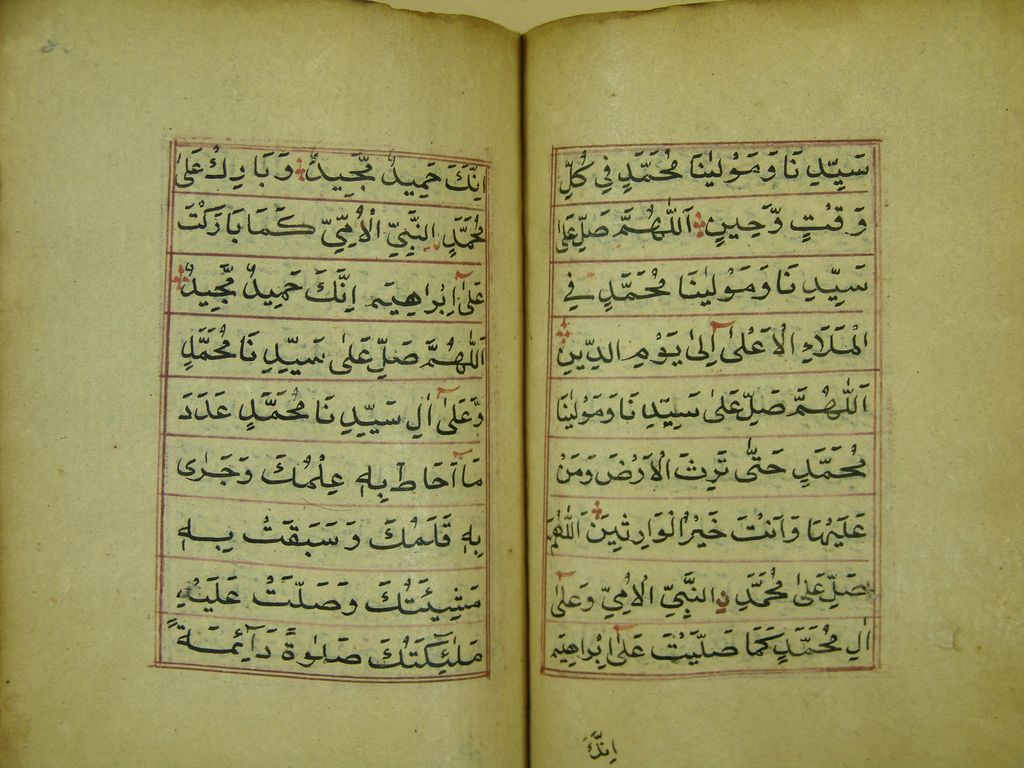 سَيِّدِنَا وَمَوْلٰينَا مُحَمَّدٍ فِي كُلِّ
وَقْتٍ وَّحِينٍ اَللّٰهُمَّ صَلِّ عَلٰى
سَيِّدِنَا وَمَوْلٰينَا مُحَمَّدٍ فِي
الْمَلَاءِ الْاَعْلٰى اِلٰى يَوْمِ الدِّينِ
اَللّٰهُمَّ صَلِّ عَلٰى سَيِّدِنَا وَمَوْلٰينَا
مُحَمَّدٍ حَتّٰى تَرِثَ الْاَرْضَ وَمَنْ
عَلَيْهَا وَاَنْتَ خَيْرُ الْوَارِثِينَ اَللّٰهُمَّ
صَلِّ عَلٰى مُحَمَّدِ نِ النَّبِيِّ الْاُمِّيِّ وَعَلٰى
اٰلِ مُحَمَّدٍ كَمَا صَلَّيْتَ عَلٰى اِبْرَاهِيمَ
اِنَّكَ
اِنَّكَ حَمِيدٌ مَّجِيدٌ وَبَارِكْ عَلٰى
مُحَمَّدِ نِ النَّبِيِّ الْاُمِّيِّ كَمَا بَارَكْتَ
عَلٰى اِبْرَاهِيمَ اِنَّكَ حَمِيدٌ مَّجِيدٌ
اَللّٰهُمَّ صَلِّ عَلٰى سَيِّدِنَا مُحَمَّدٍ
وَّعَلٰى اٰلِ سَيِّدِنَا مُحَمَّدٍ عَدَدَ
مَا اَحَاطَ بِهٖ عِلْمُكَ وَجَرٰى
بِهٖ قَلَمُكَ وَسَبَقَتْ بِهٖ
مَشِيئَتُكَ وَصَلَّتْ عَلَيْهِ
مَلٰئِكَتُكَ صَلٰوةً دَآئِمَةً